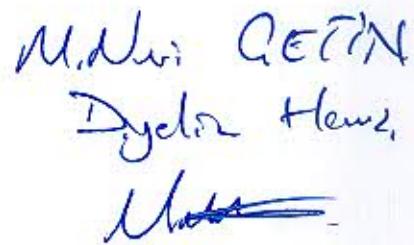 M. Nuri ÇETİN
Diyaliz Hemş.